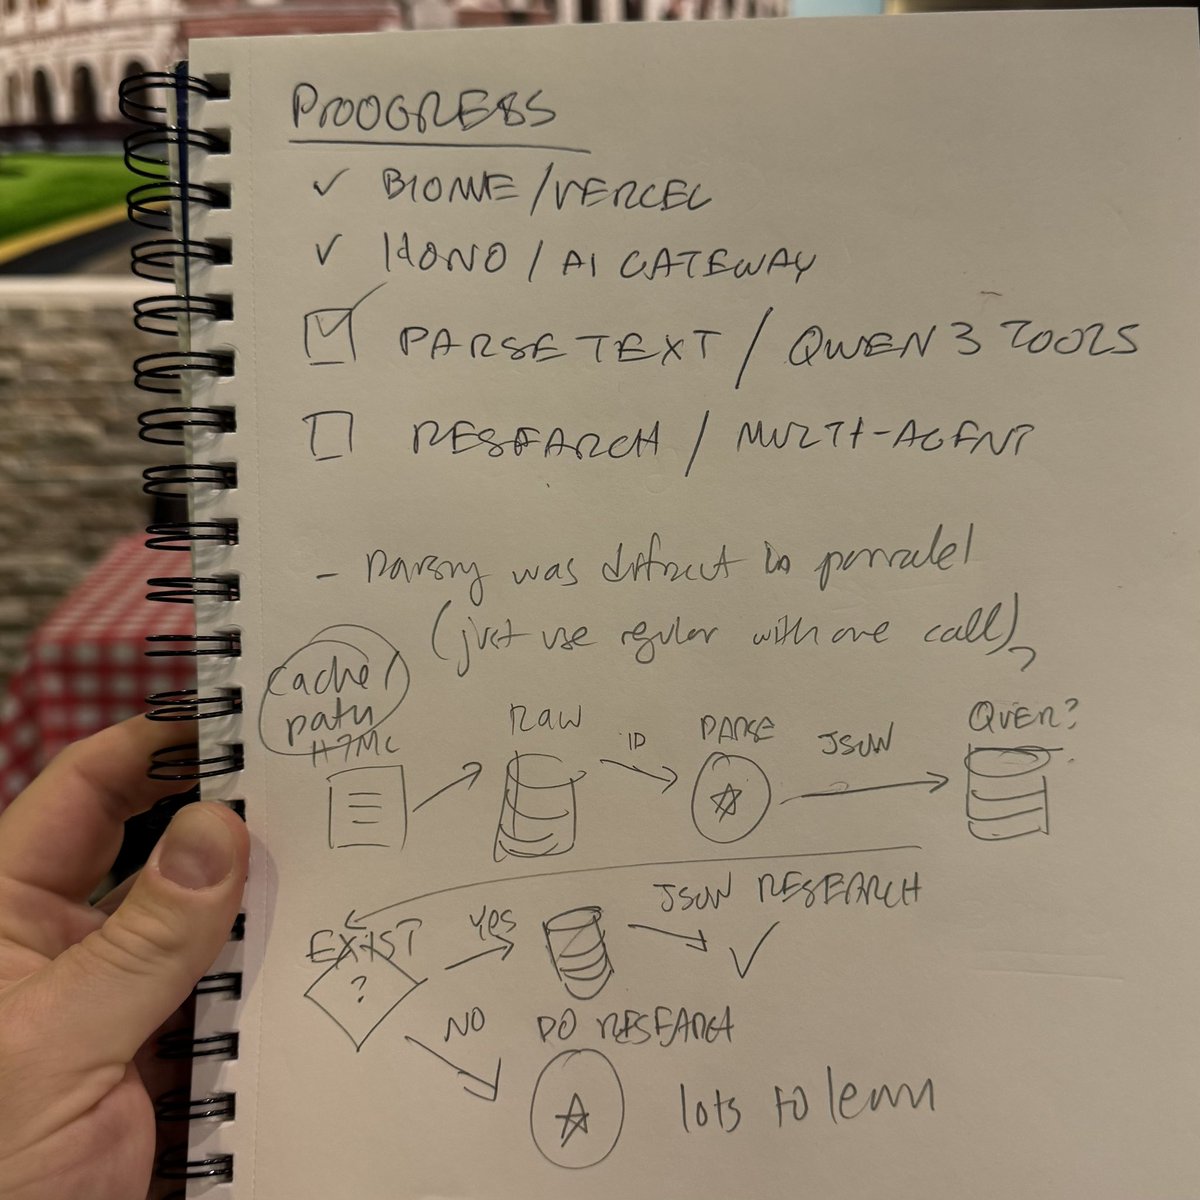 PROOGRESS
✓ BIOME / VERCEL
✓ HONO / AI GATEWAY
☑ PARSE TEXT / QWEN 3 TOOLS
☐ RESEARCH / MULTI-AGENT
- parsing was difficult in parralel
(just use regular with one call)
cache /
path
HTML
RAW
ID
PARSE
JSON
?
EXIST
?
YES
JSON RESEARCH
✓
NO
DO RESEARCH
lots to learn